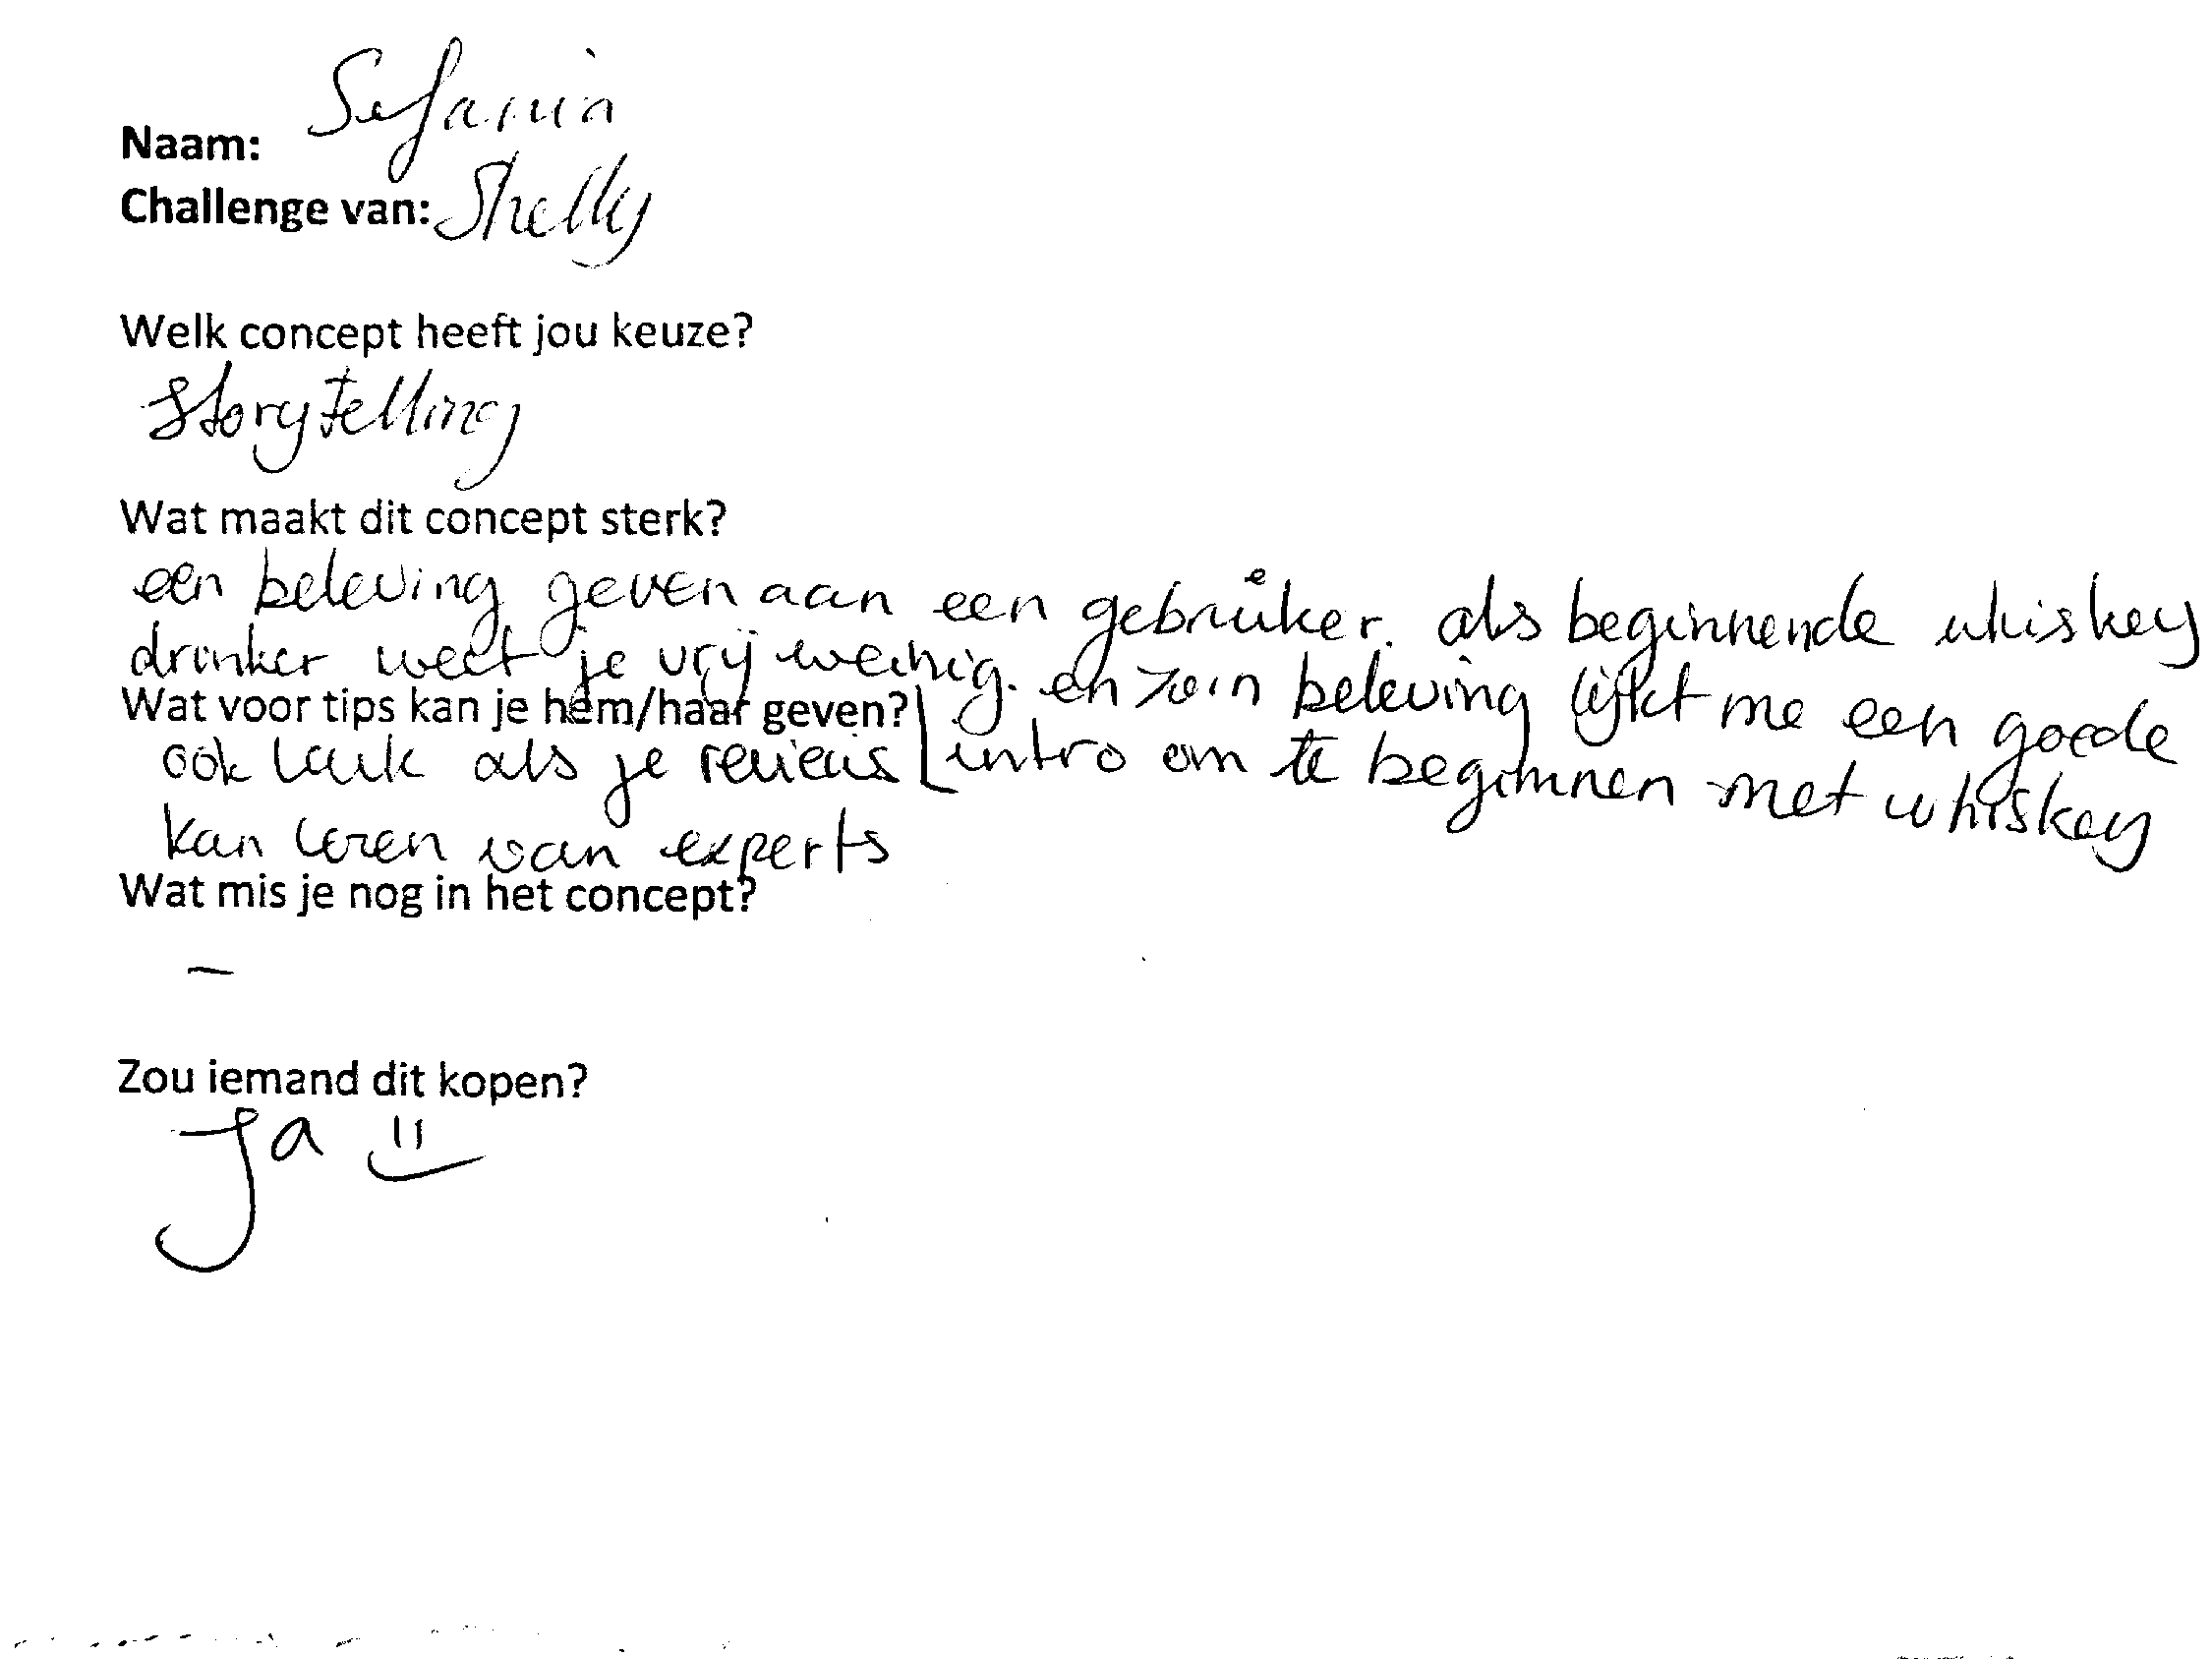 Naam: Sefania
Challenge van: Shelly
Welk concept heeft jou keuze?
Storytelling
Wat maakt dit concept sterk?
een beleving geven aan een gebruiker. als beginnende whiskey
drinker weet je vrij weinig. en zo'n beleving lijkt me een goede
intro om te beginnen met whiskey
Wat voor tips kan je hem/haar geven?
ook leuk als je reviews
kan lezen van experts
Wat mis je nog in het concept?
—
Zou iemand dit kopen?
Ja